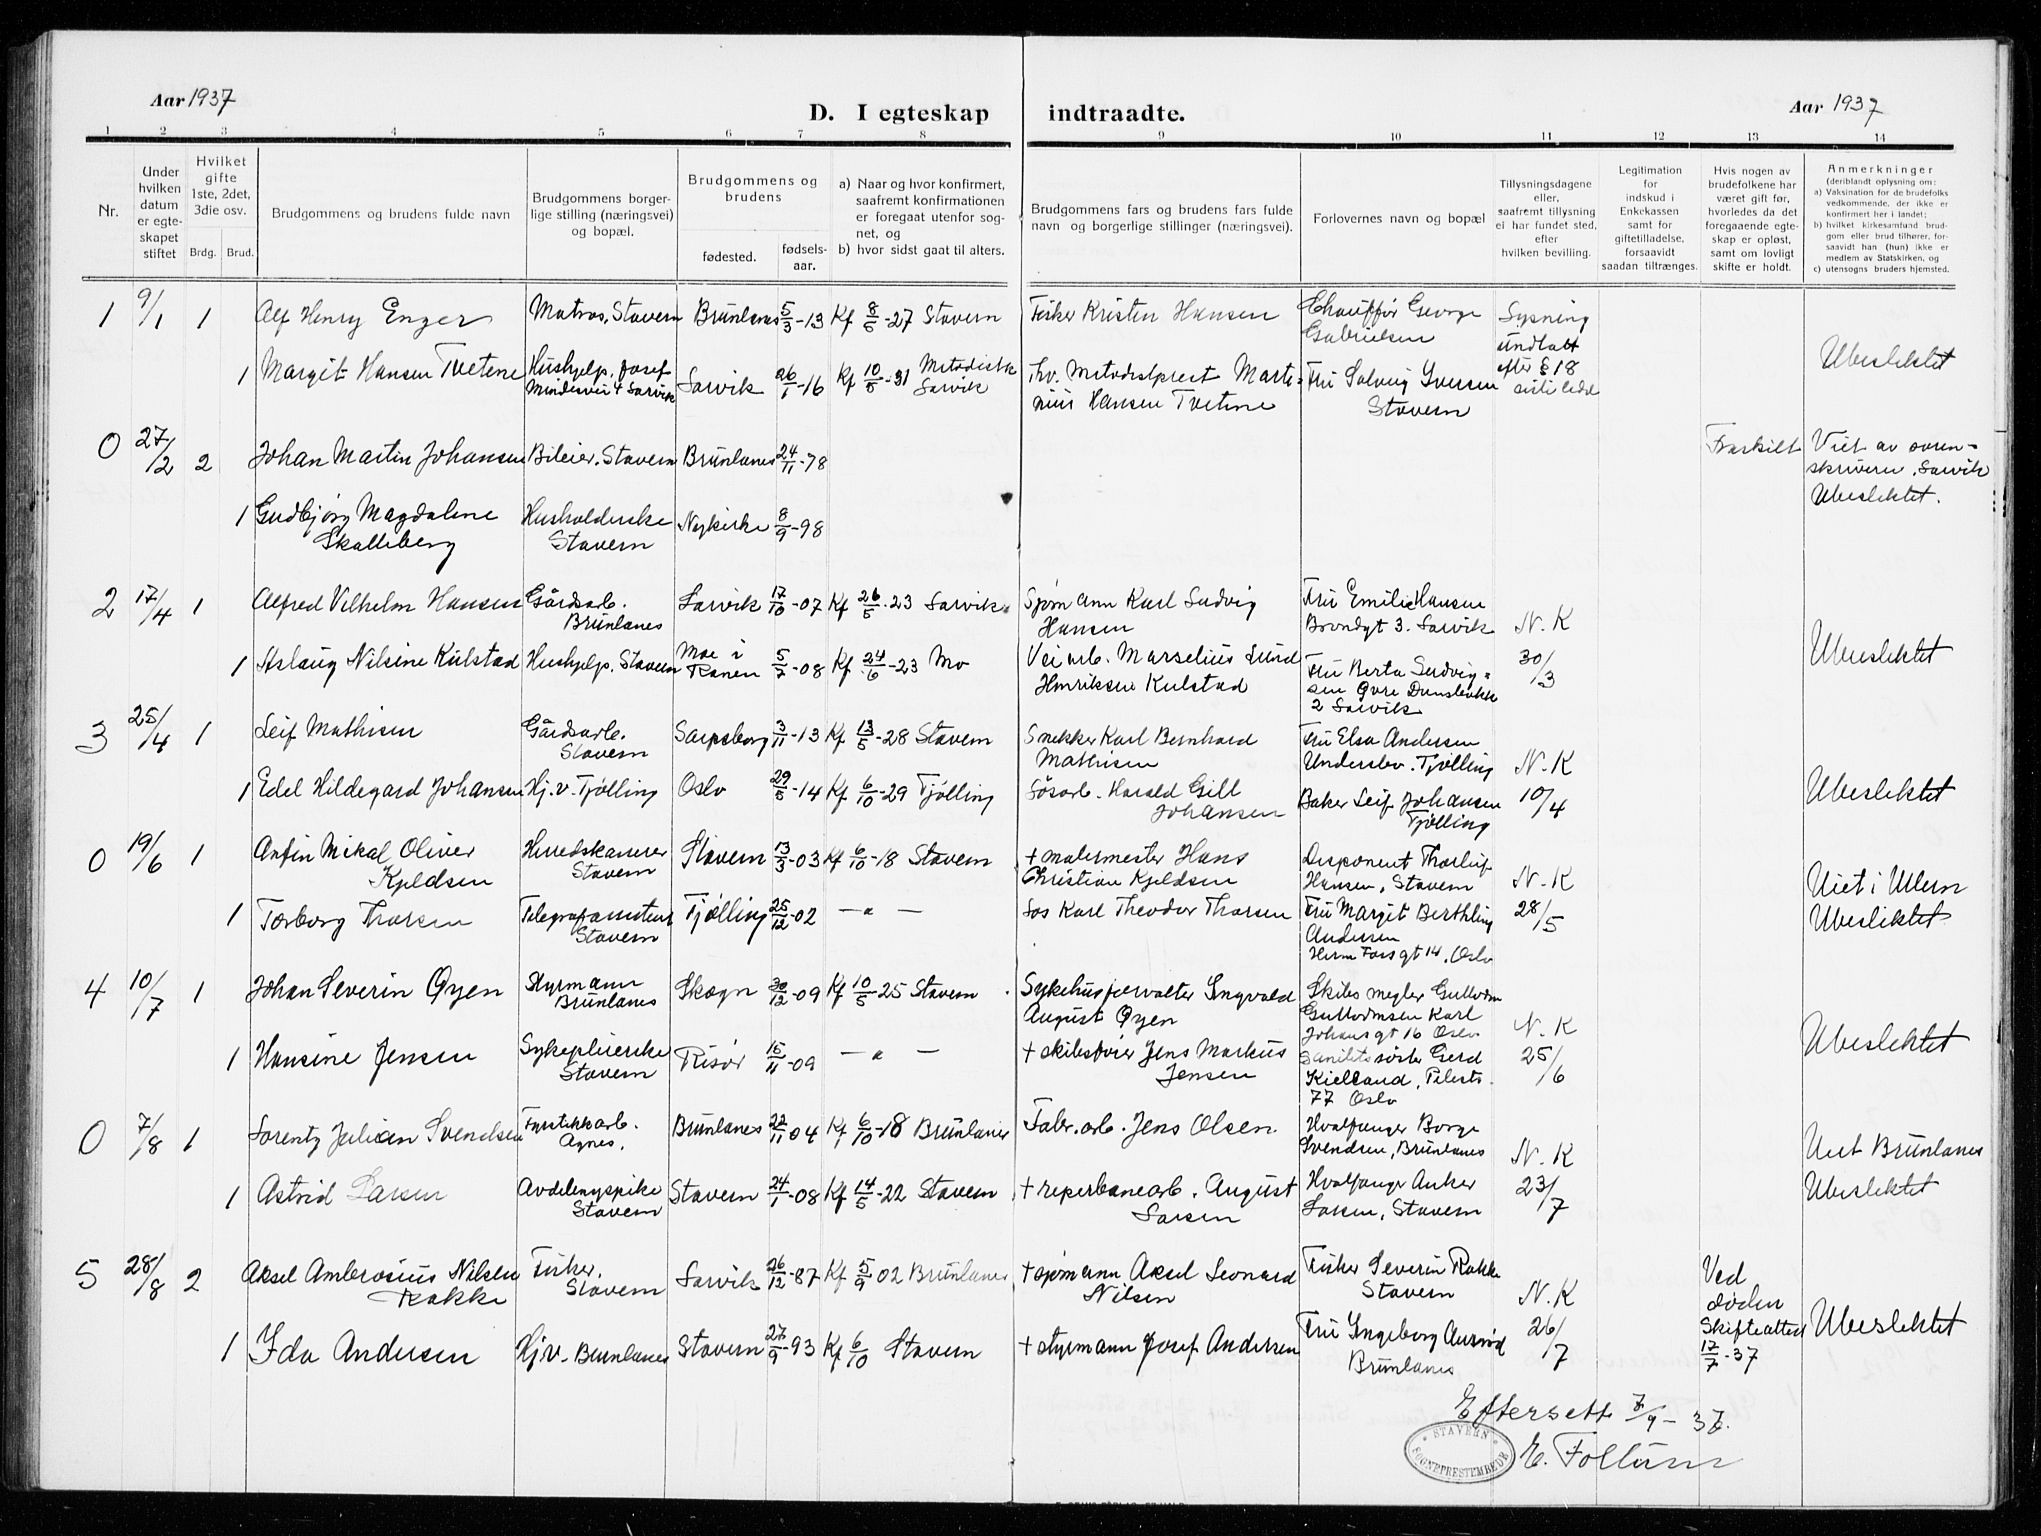 Aar 1937
D. I egteskap indtraadte.
Aar 1937
1 2 3 4 5 6 7 8 9 10 11 12 13 14
Nr.
Under hvilken datum er egteskapet stiftet
Hvilket gifte 1ste, 2det, 3die osv.
Brdg. Brud.
Brudgommens og brudens fulde navn
Brudgommens borgerlige stilling (næringsvei) og bopæl.
Brudgommens og brudens
fødested.
fødselsaar.
a) Naar og hvor konfirmert, saafremt konfirmationen er foregaat utenfor sognet, og
b) hvor sidst gaat til alters.
Brudgommens fars og brudens fars fulde navn og borgerlige stillinger (næringsvei).
Forlovernes navn og bopæl
Tillysningsdagene eller, saafremt tillysning ei har fundet sted, efter hvilken bevilling.
Legitimation for indskud i Enkekassen samt for giftetilladelse, forsaavidt saadan tiltrænges.
Hvis nogen av brudefolkene har været gift før, hvorledes da det foregaaende egteskap er opløst, samt om lovligt skifte er holdt.
Anmerkninger
(deriblandt oplysning om:
a) Vaksination for de brudefolks vedkommende, der ikke er konfirmert her i landet;
b) hvilket kirkesamfund brudgom eller brud tilhører, forsaavidt han (hun) ikke er medlem av Statskirken, og
c) utensogns bruders hjemsted.
1 9/1 1 Alf Henry Enger Matros, Stavern Brunlanes 5/3-13 Kf 8/5-27 Stavern Fisker Kristen Hansen Chauffør George Gabrielsen Lysning undlatt efter § 18 siste ledd
1 Margit Hansen Tvetene Hushjelp. Josef Mindesvei 4 Larvik Larvik 26/1-16 Kf 10/5-31 Metodistk Larvik Fhv. Metodistprest Martinius Hansen Tvetene Fru Solveig Iversen Stavern Ubeslektet
0 27/2 2 Johan Martin Johansen Bileier. Stavern Brunlanes 24/11-78 Fraskilt Viet av sorenskriveren, Larvik Ubeslektet.
1 Gudbjørg Magdalene Skalleberg Husholderske Stavern Nykirke 8/9-98
2 17/4 1 Alfred Vilhelm Hansen Gårdsarb. Brunlanes Larvik 17/10-07 Kf 26/5-23 Larvik Sjømann Karl Ludvig Hansen Fru Emilie Hansen Brondgt 3. Larvik N.K
1 Aslaug Nilsine Kulstad Hushjelp. Stavern Moe i Ranen 5/7-08 Kf 24/6-23 Mo Veiarb. Marselius Lund Henriksen Kulstad Fru Berta Ludvigsen Øvre Damsbakke 2 Larvik 30/3 Ubeslektet
3 25/4 1 Leif Mathisen Gårdsarb. Stavern Sarpsborg 3/11-13 Kf 13/5-28 Stavern Snekker Karl Bernhard Mathisen Fru Elsa Andersen Underslev. Tjølling N.K
1 Edel Hildegard Johansen Hj.v. Tjølling Oslo 29/5-14 Kf 6/10-29 Tjølling Løsarb. Harald Gill Johansen Baker Leif Johansen Tjølling 10/4 Ubeslektet
0 19/6 1 Anfin Mikal Oliver Kjeldsen Herredskaserer Stavern Stavern 13/3-03 Kf 6/10-18 Stavern + malermester Hans Christian Kjeldsen Disponent Thorleif Hansen, Stavern N.K Viet i Ulern
1 Torborg Thorsen Telegrafassistent Stavern Tjølling 25/12-02 — " — Los Karl Theodor Thorsen Fru Margit Berthling Andersen Herm Fossgt 14, Oslo 28/5 Ubeslektet
4 10/7 1 Johan Severin Øyen Styrmann Brunlanes Skogn 30/12-09 Kf 10/5-25 Stavern Sykehusforvalter Ingvald August Øyen Skibsmegler Guttorm Guttormsen Karl Johansgt 16 Oslo N.K
1 Hansine Jensen Sykepleierske Stavern Risør 15/11-09 — " — + skibsfører Jens Markus Jensen Sanitetssøster Gerd Kielland, Pilestr. 77 Oslo 25/6 Ubeslektet
0 7/8 1 Lorentz Julian Svendsen Fyrstikkarb. Agnes. Brunlanes 22/11-04 Kf 6/10-18 Brunlanes Fabr.arb. Jens Olsen Hvalfanger Borge Svendsen, Brunlanes N.K Viet Brunlanes
1 Astrid Larsen Avdelingspike Stavern Stavern 24/1-08 Kf 14/5-22 Stavern + reperbanearb. August Larsen Hvalfanger Anker Larsen, Stavern 23/7 Ubeslektet
5 28/8 2 Aksel Ambrosius Nilsen Rakke Fisker. Stavern Larvik 26/12-87 Kf 5/9 02 Brunlanes + sjømann Aksel Leonard Nilsen Fisker Severin Rakke Stavern N.K Ved døden Skifteattest 17/7-37
1 Ida Andersen Hj.v. Brunlanes Stavern 27/9-93 Kf 6/10 Stavern + styrmann Josef Andersen Fru Ingeborg Aursød Brunlanes 26/7 Ubeslektet
Eftersett 7/9-37.
E. Follum
STAVERN SOGNEPRESTEMBEDE